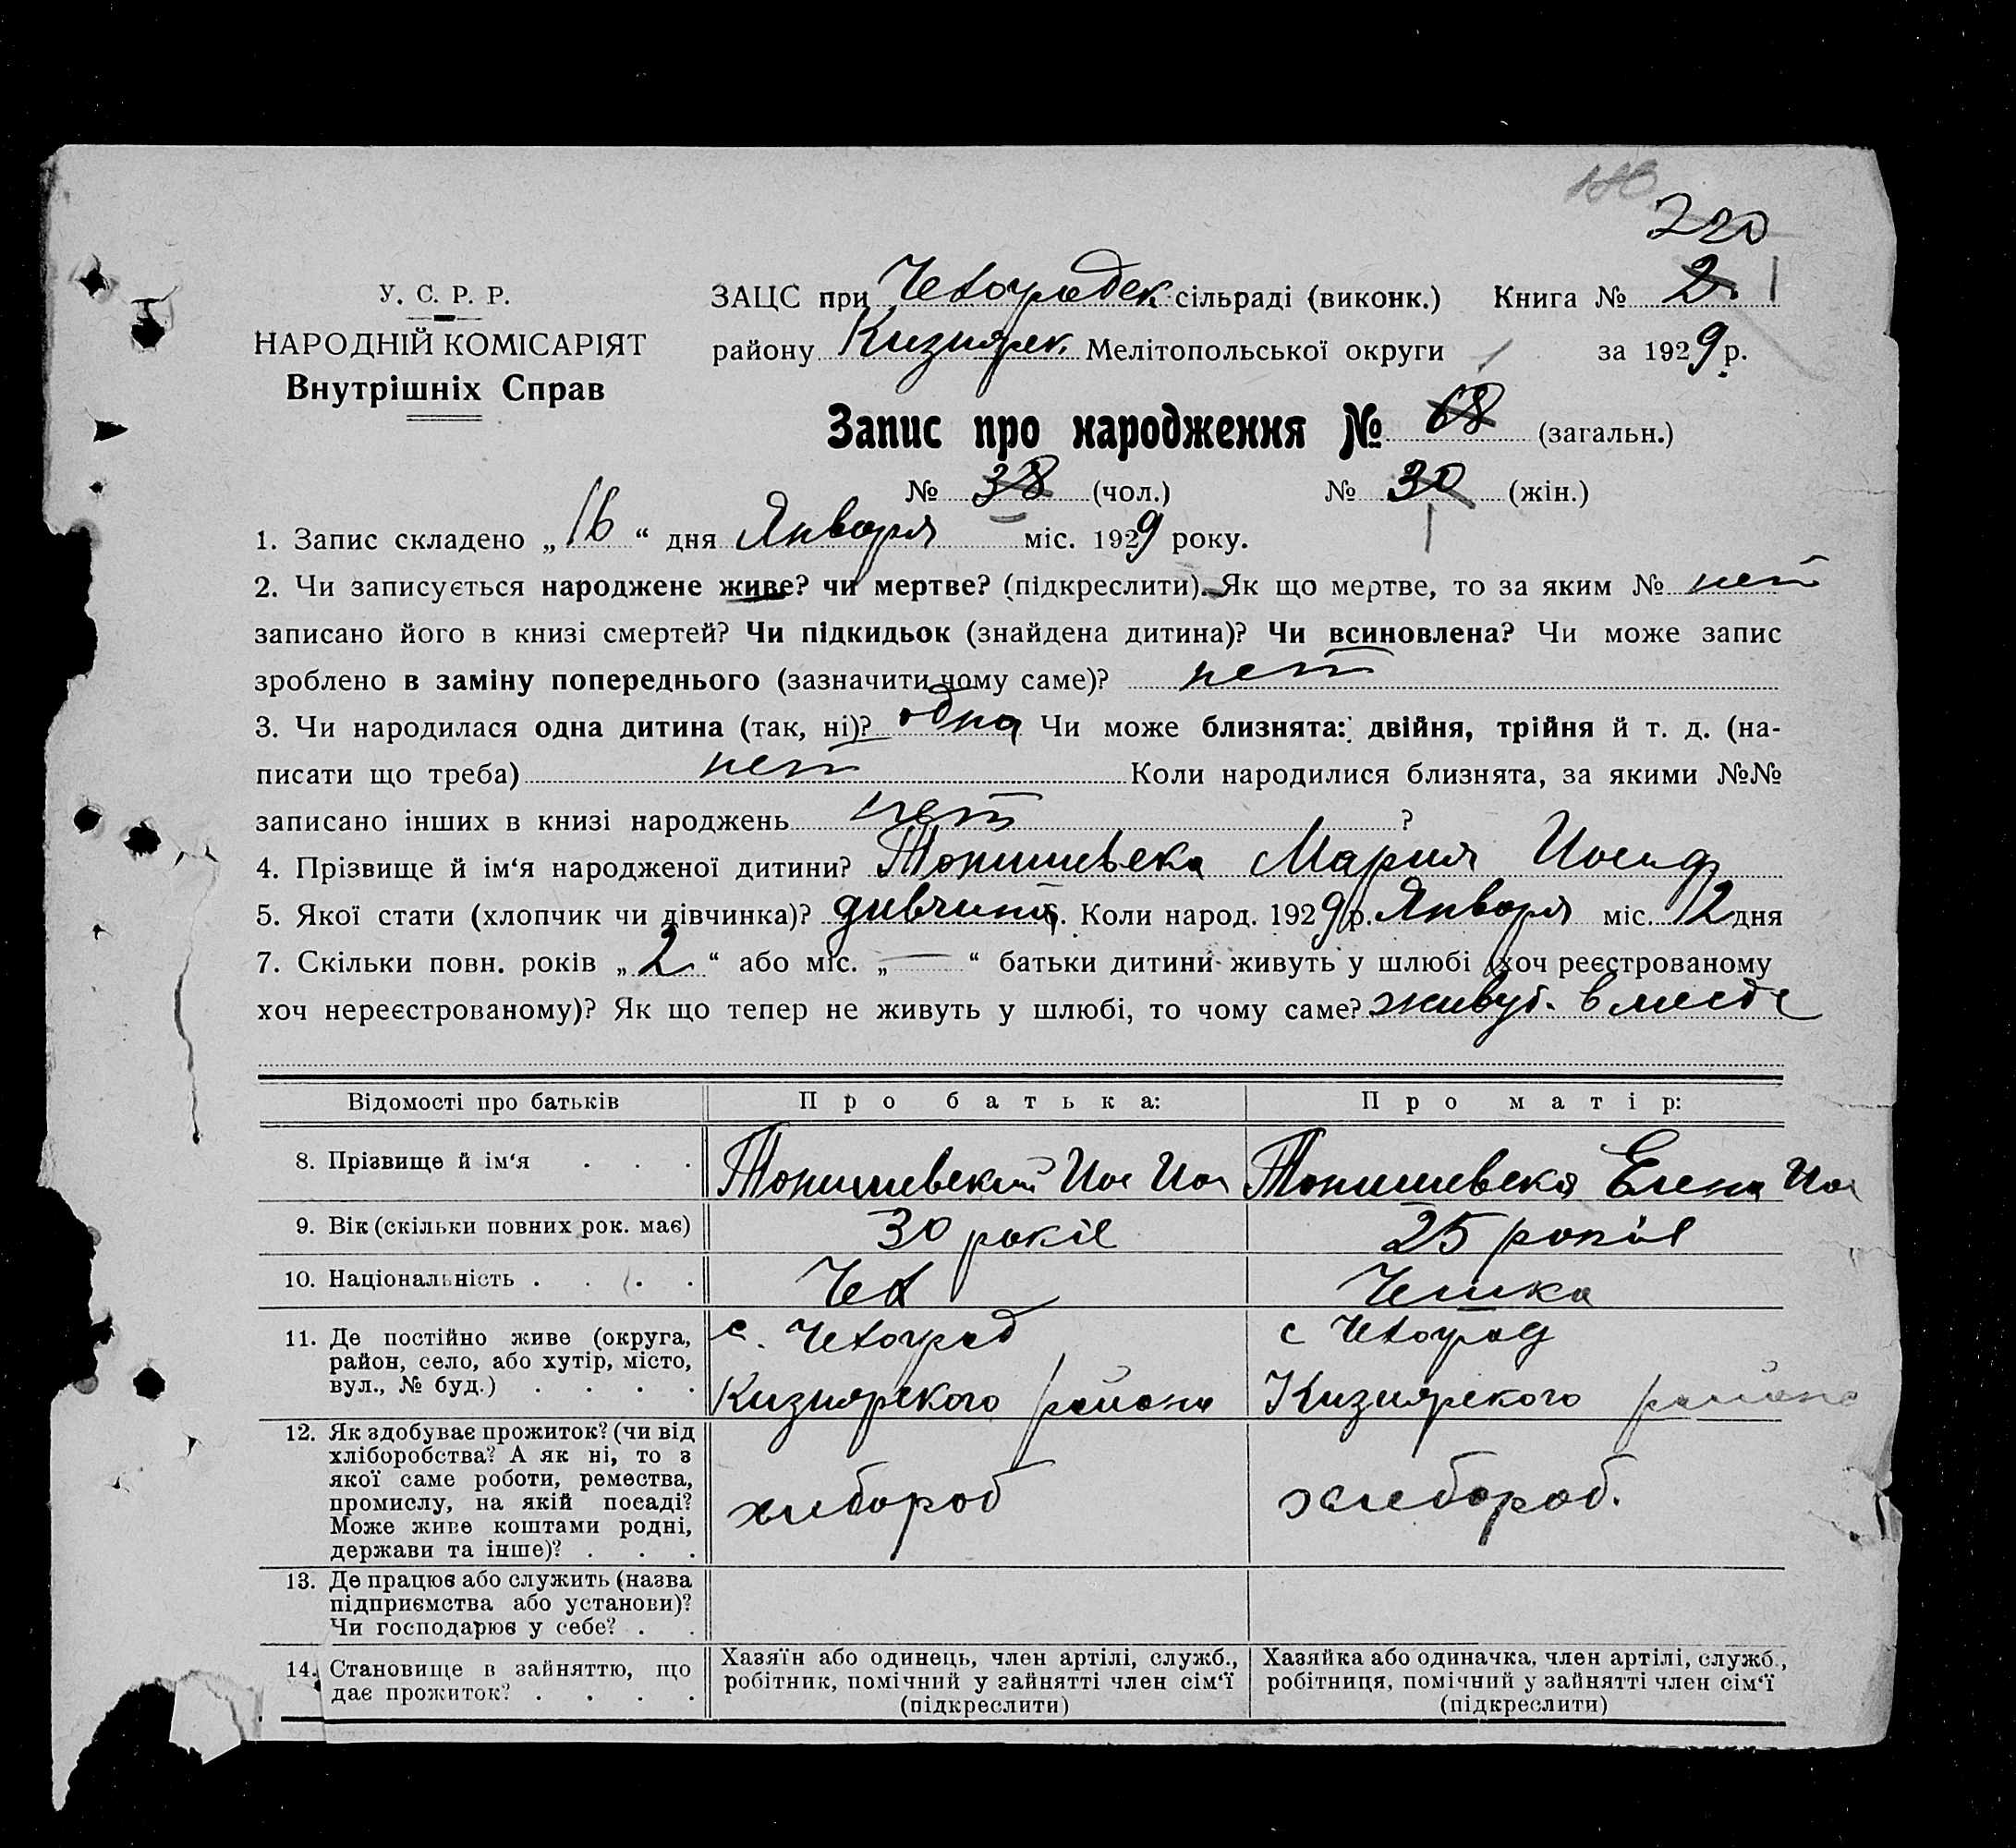 220
У. С. Р. Р.
НАРОДНІЙ КОМІСАРІЯТ
Внутрішніх Справ
ЗАЦС при Чехоградск. сільраді (виконк.) Книга № 2. 1
району Кизиярск. Мелітопольської округи за 1929 р.
Запис про народження № 68 (загальн.)
№ 38 (чол.) № 30 (жін.)
1. Запис складено „16“ дня Января міс. 1929 року.
2. Чи записується народжене живе? чи мертве? (підкреслити). Як що мертве, то за яким № нет
записано його в книзі смертей? Чи підкидьок (знайдена дитина)? Чи всиновлена? Чи може запис
зроблено в заміну попереднього (зазначити чому саме)? нет
3. Чи народилася одна дитина (так, ні)? одна Чи може близнята: двійня, трійня й т. д. (на-
писати що треба) нет Коли народилися близнята, за якими №№
записано інших в книзі народжень нет ?
4. Прізвище й ім‘я народженої дитини? Мария Иосиф
5. Якої стати (хлопчик чи дівчинка)? Коли народ. 1929 р. Января міс. 12 дня
7. Скільки повн. років „2“ або міс. „—“ батьки дитини живуть у шлюбі (хоч реєстрованому
хоч нереєстрованому)? Як що тепер не живуть у шлюбі, то чому саме? живут. вместе
Відомості про батьків Про батька: Про матір:
8. Прізвище й ім‘я . . . Иос Иос Елена Иос
9. Вік (скільки повних рок. має) 30 років 25 років
10. Національність . . . . Чех Чешка
11. Де постійно живе (округа,
район, село, або хутір, місто,
вул., № буд.) . . . .
с. Чехоград
Кизиярского района
с Чехоград
Кизиярского района
12. Як здобуває прожиток? (чи від
хліборобства? А як ні, то з
якої саме роботи, ремества,
промислу, на якій посаді?
Може живе коштами родні,
держави та інше)? . . .
хлебороб
хлебороб.
13. Де працює або служить (назва
підприємства або установи)?
Чи господарює у себе? . .
14. Становище в зайняттю, що
дає прожиток? . . . .
Хазяїн або одинець, член артілі, служб.,
робітник, помічний у зайнятті член сім‘ї
(підкреслити)
Хазяйка або одиначка, член артілі, служб.,
робітниця, помічний у зайнятті член сім‘ї
(підкреслити)